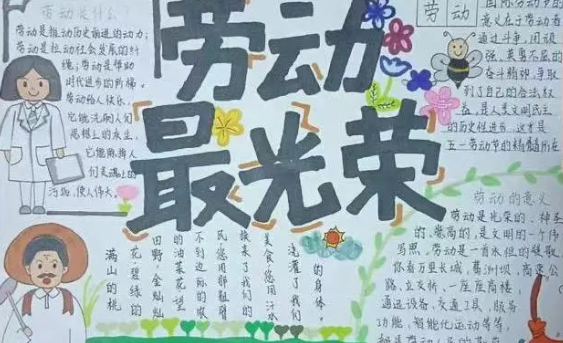 劳动是什么?
劳动是推动历史前进的动力;
劳动是拉动社会发展的纤
绳;劳动是帮助
时代进步的阶梯。
劳动给人快乐,
它能洗刷人们
思想上的灰尘,
它能熏掉人
们灵魂上的
污物,使人伟大。
劳动
最光荣
劳动
国际劳动节的
意义在于劳动者
通过斗争,用顽
强、英勇不屈的
奋斗精神,争取
到了自己的合法权
益,是人类文明民主
的历史性进步,这才是
五一劳动节的精髓所在
劳动的意义
劳动是光荣的、神圣
的、崇高的,是文明的一个伟
写照,劳动是一首永恒的赞歌
你看万里长城、葛洲坝、高速公
路、立交桥、一座座高楼、
通迅设备、交通工具、服务
功能、智能化运动等等,
的身体。
浇灌了我们
美食,您用汗水
换来了我们
民,您用那粗糙
不到边际的农
的油菜花望
田野,金灿灿
花,碧绿的
满山的桃